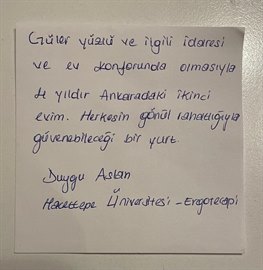 Güler yüzlü ve ilgili idaresi
ve ev konforunda olmasıyla
4 yıldır Ankaradaki ikinci
evim. Herkesin gönül rahatlığıyla
güvenebileceği bir yurt.
Duygu Aslan
Hacettepe Üniversitesi - Ergoterapi